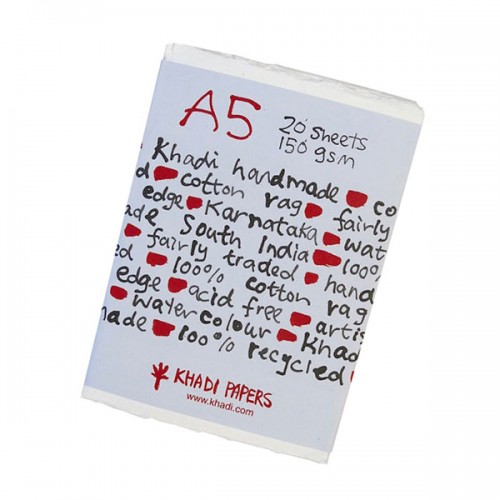 A5
20 sheets
150 gsm
Khadi handmade co
d cotton rag fairly
edge Karnataka wat
ade South India 100%
fairly traded hand
d 100% cotton rag
edge acid free artis
watercolour Khad
made 100% recycled
KHADI PAPERS
www.khadi.com